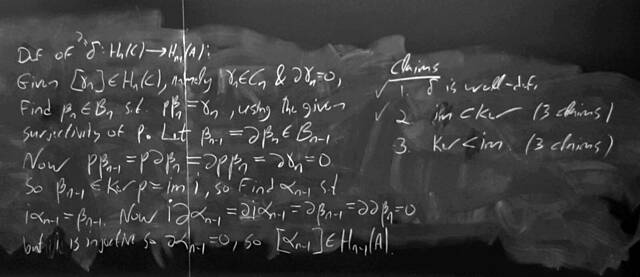 Def of "∂" δ: Hn(C) → Hn-1(A):
Given [γn] ∈ Hn(C), namely γn ∈ Cn & ∂γn = 0,
Find βn ∈ Bn s.t. pβn = γn, using the given
surjectivity of p. Let βn-1 = ∂βn ∈ Bn-1
Now pβn-1 = p∂βn = ∂pβn = ∂γn = 0
So βn-1 ∈ Ker p = im i, so Find αn-1 s.t
iαn-1 = βn-1. Now i∂αn-1 = ∂iαn-1 = ∂βn-1 = ∂∂βn = 0
but i is injective so ∂αn-1 = 0, so [αn-1] ∈ Hn-1(A).
Claims
✓ 1. δ is well-def.
✓ 2. im ⊂ Ker (3 claims)
3. Ker ⊂ im. (3 claims)